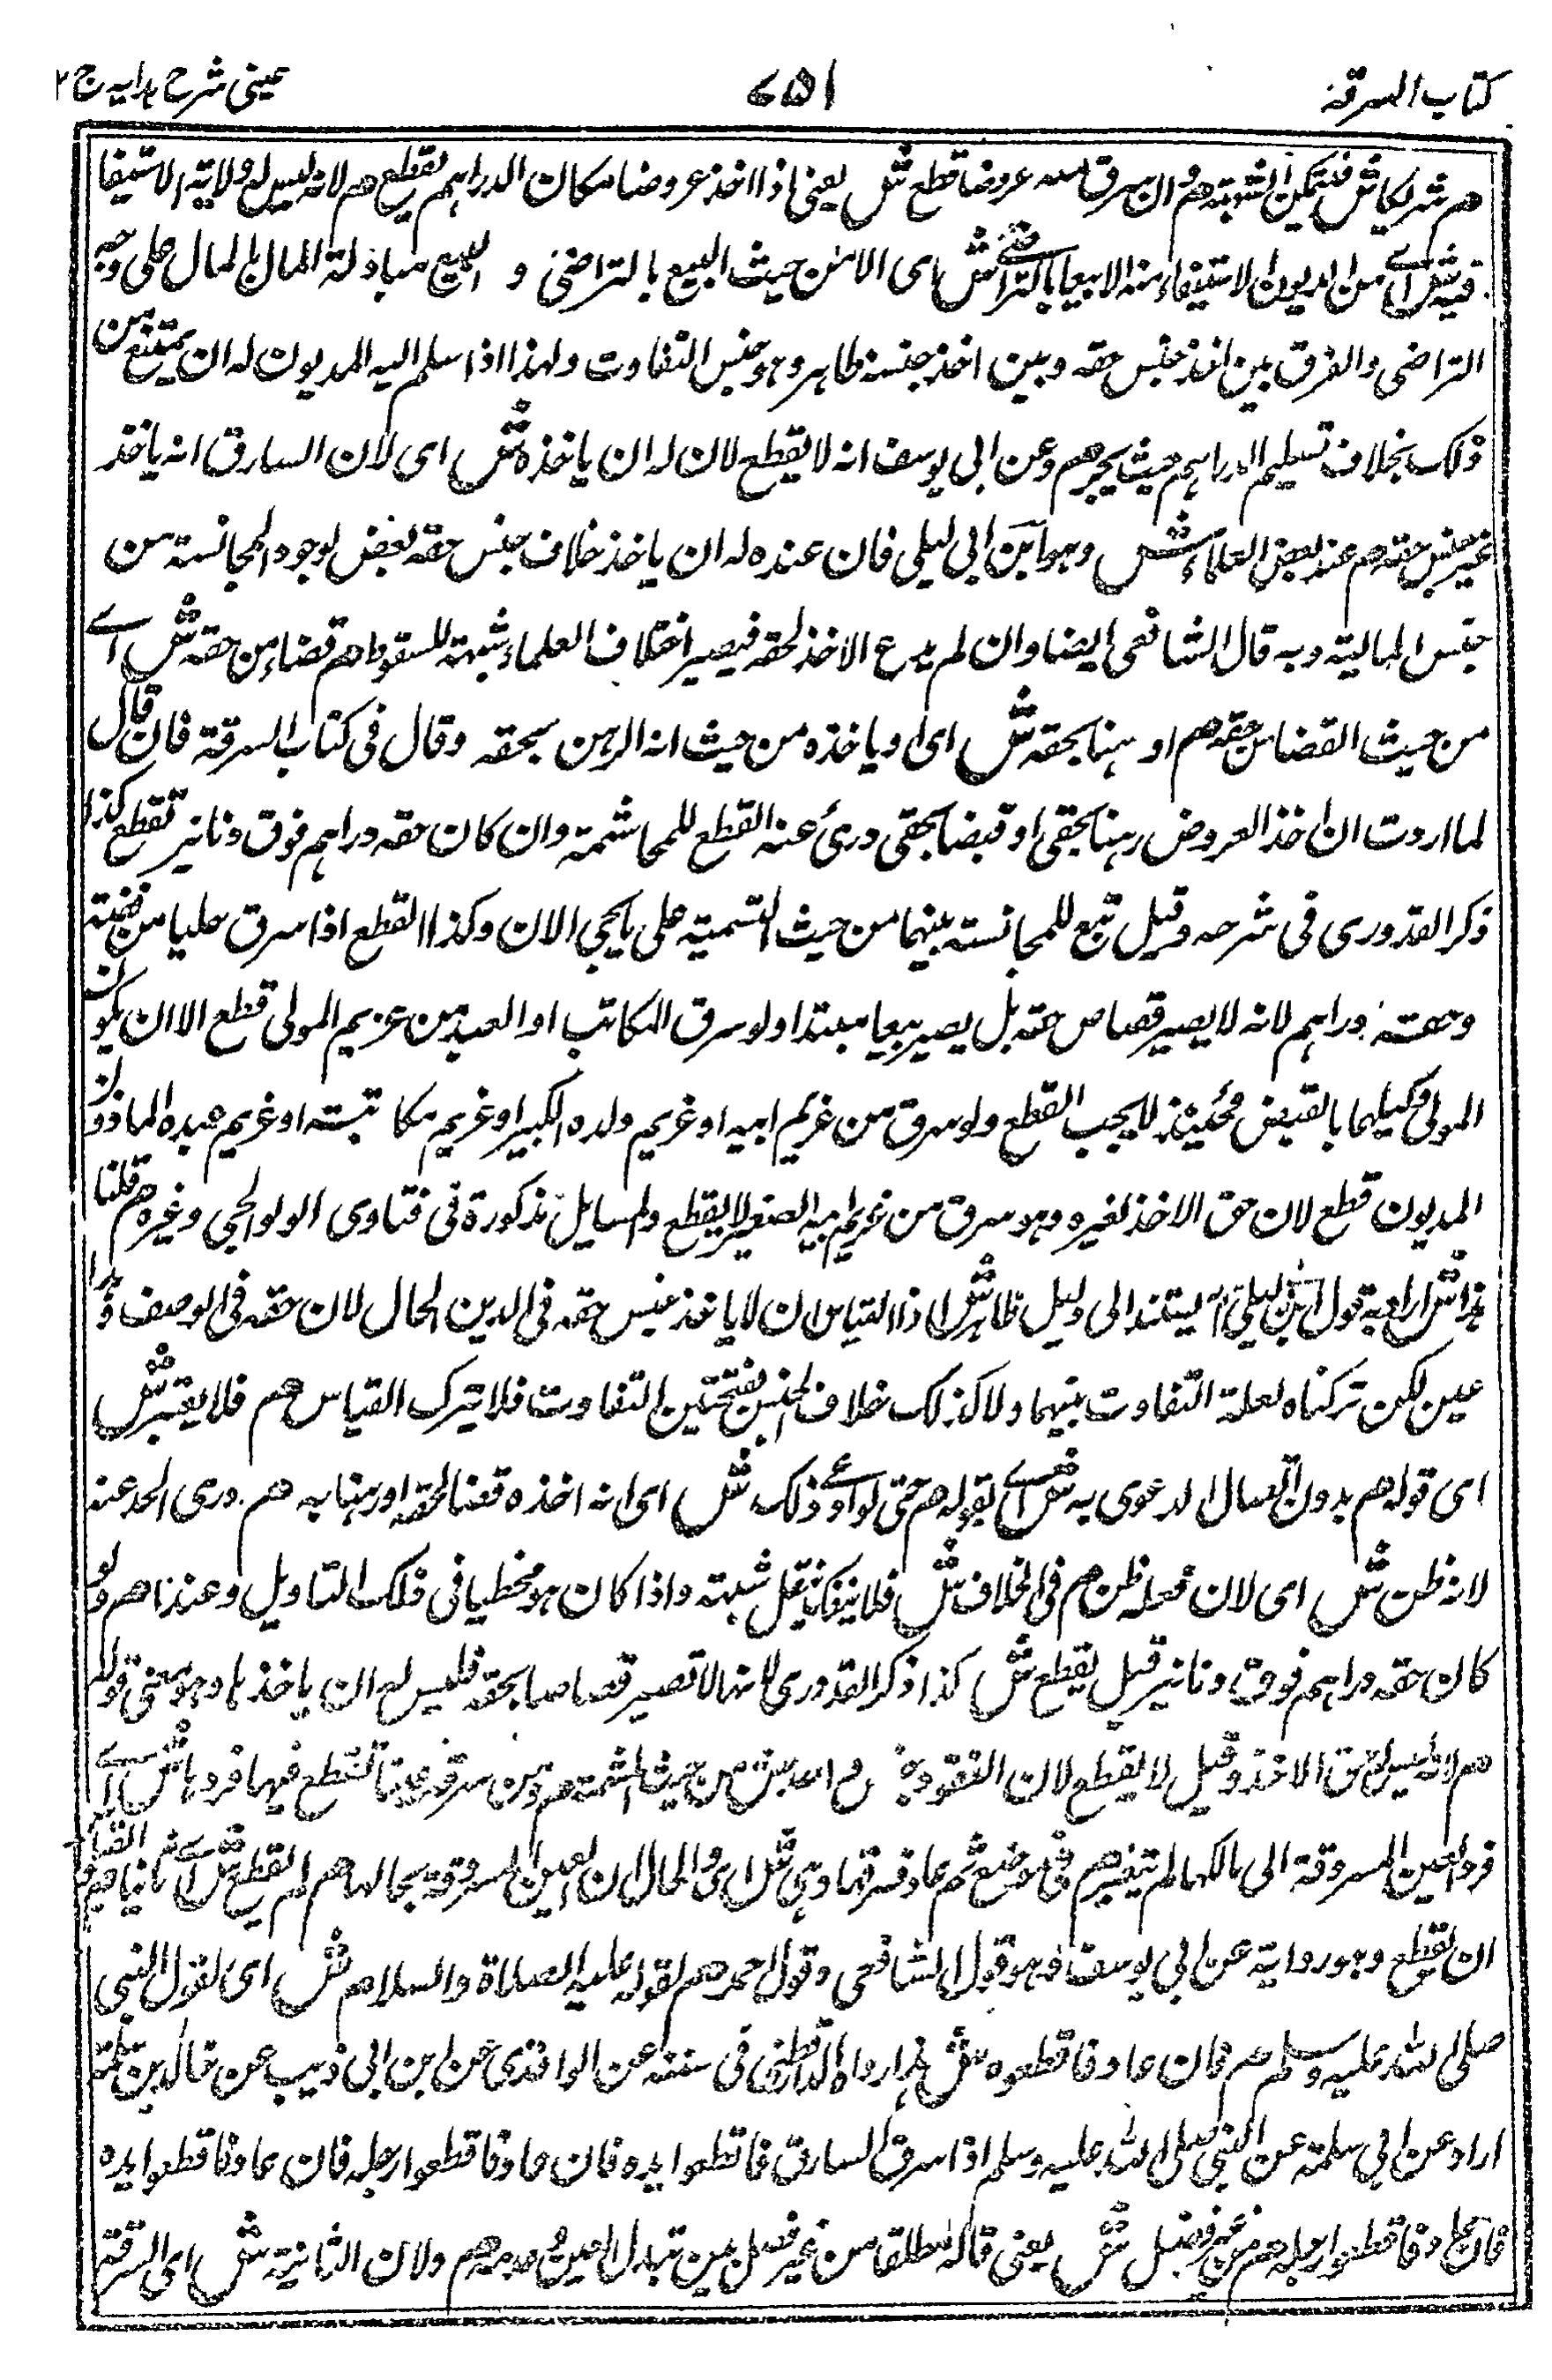 كتاب السرقة ٧٥١ عينى شرح هدايه ج ٢
هم شريكا ش فتمكن الشبهة هم وان سرق منه عروضا قطع ش يعنى اذا اخذ عروضا مكان الدراهم يقطع هم لانه ليس له ولاية الاستيفا
فيه ش اے من المديون الاستيفاء منه الا بيعا بالتراضے ش اى الا من حيث البيع بالتراضى و البيع مبادلة المال بالمال على وجه
التراضى والفرق بين اخذ جنس حقه وبين اخذ جنسه ظاهر وهو جنس التفاوت ولهذا اذا سلم اليه المديون له ان يمتنع من
ذلك بخلاف تسليم الدراهم حيث يجبر هم وعن ابى يوسف انه لا يقطع لان له ان ياخذه ش اى لان السارق انه ياخذ
غير جنس حقه هم عند بعض العلماء ش وهو ابن ابى ليلى فان عنده له ان ياخذ خلاف جنس حقه بعض لوجود المجانسة من
جنس المالية وبه قال الشافعى ايضا وان لم يدع الاخذ لحقه فيصير اختلاف العلماء شبهة للسقوط هم قضاء من حقه ش اے
من حيث القضا من حقه هم او رهنا بحقه ش اى او ياخذه من حيث انه الرهن بحقه وقال فى كتاب السرقة فان قال
لما اردت ان اخذ العروض رهنا بحقى او قبضا بحقى درئ عنه القطع للمحاشمة وان كان حقه دراهم فوق دنانير تقطع كذا
ذكر القدورى فى شرحه وقيل تبع للمجانسة بينهما من حيث التسمية على ما يجى الان وكذا القطع اذا سرق حليا من فضة
وحقه دراهم لانه لا يصير قصاص حقه بل يصير بيعا مبتدا ولو سرق المكاتب او العبد من غريم المولى قطع الا ان يكون
المولى وكيلهما بالقبض فحينئذ لا يجب القطع ولو سرق من غريم ابيه او غريم ولده الكبير او غريم مكاتبته او غريم عبده الماذون
المديون قطع لان حق الاخذ لغيره وهو سرق من غريم ابنه الصغير لا يقطع والمسايل مذكورة فى فتاوى الولوالجى وغيره هم قلنا
هذا ش اراد به قول ابن ابى ليلى يستند الى دليل ظاهر ش اذا القياس ان لا ياخذ جنس حقه فى الدين الحال لان حقه فى الوصف وهذا
عين لكن تركناه لعلة التفاوت بينهما ولا كذلك خلاف الجنس بفتحتين التفاوت فلا يترك القياس هم فلا يعتبر ش
اى قوله هم بدون اتصال الدعوى به ش اے بقوله هم حتى لو ادعے ذلك ش اى انه اخذه قضا لحقه او رهنا به هم درى الحد عنه
لانه ظن ش اى لان فعله ظن هم فى الخلاف ش فلا ينفك شبهة واذا كان هو مخطيا فى ذلك التاويل وعندنا هم ولو
كان حقه دراهم فوق دنانير قيل يقطع ش كذا ذكر القدورى لانها لا تصير قصاصا بحقه فليس له ان ياخذها وهو معنى قوله
هم لانه ليس له حق الاخذ وقيل لا يقطع لان النقود جنس واحد ش من حيث الثمنية هم ومن سرق عينا فقطع فيها فردها ش اے
فرد العين المسروقة الى مالكها لم يتغير هم فى موضع ثم عاد فسرقها وهى ش اى والحال ان العين المسروقة بحالها هم لم يقطع ش اے ثانيا هم والقياس
ان يقطع وهو رواية عن ابى يوسف وهو قول الشافعى وقول احمد هم لقوله عليه الصلاة والسلام ش اى لقول النبى
صلى الله عليه وسلم هم فان عاد فاقطعوه ش هذا رواه الدارقطنى فى سننه عن الواقدى عن ابن ابى ذيب عن خالد بن سلمة
اراد عن ابى سلمة عن النبى صلى الله عليه وسلم اذا سرق السارق فاقطعوا يده فان عاد فاقطعوا رجله فان عاد فاقطعوا يده
فان عاد فاقطعوا رجله هم من غير فصل ش يعنى قاله مطلقا من غير فصل بين تبدل العين وعدمه هم ولان الثانية ش اى السرقة